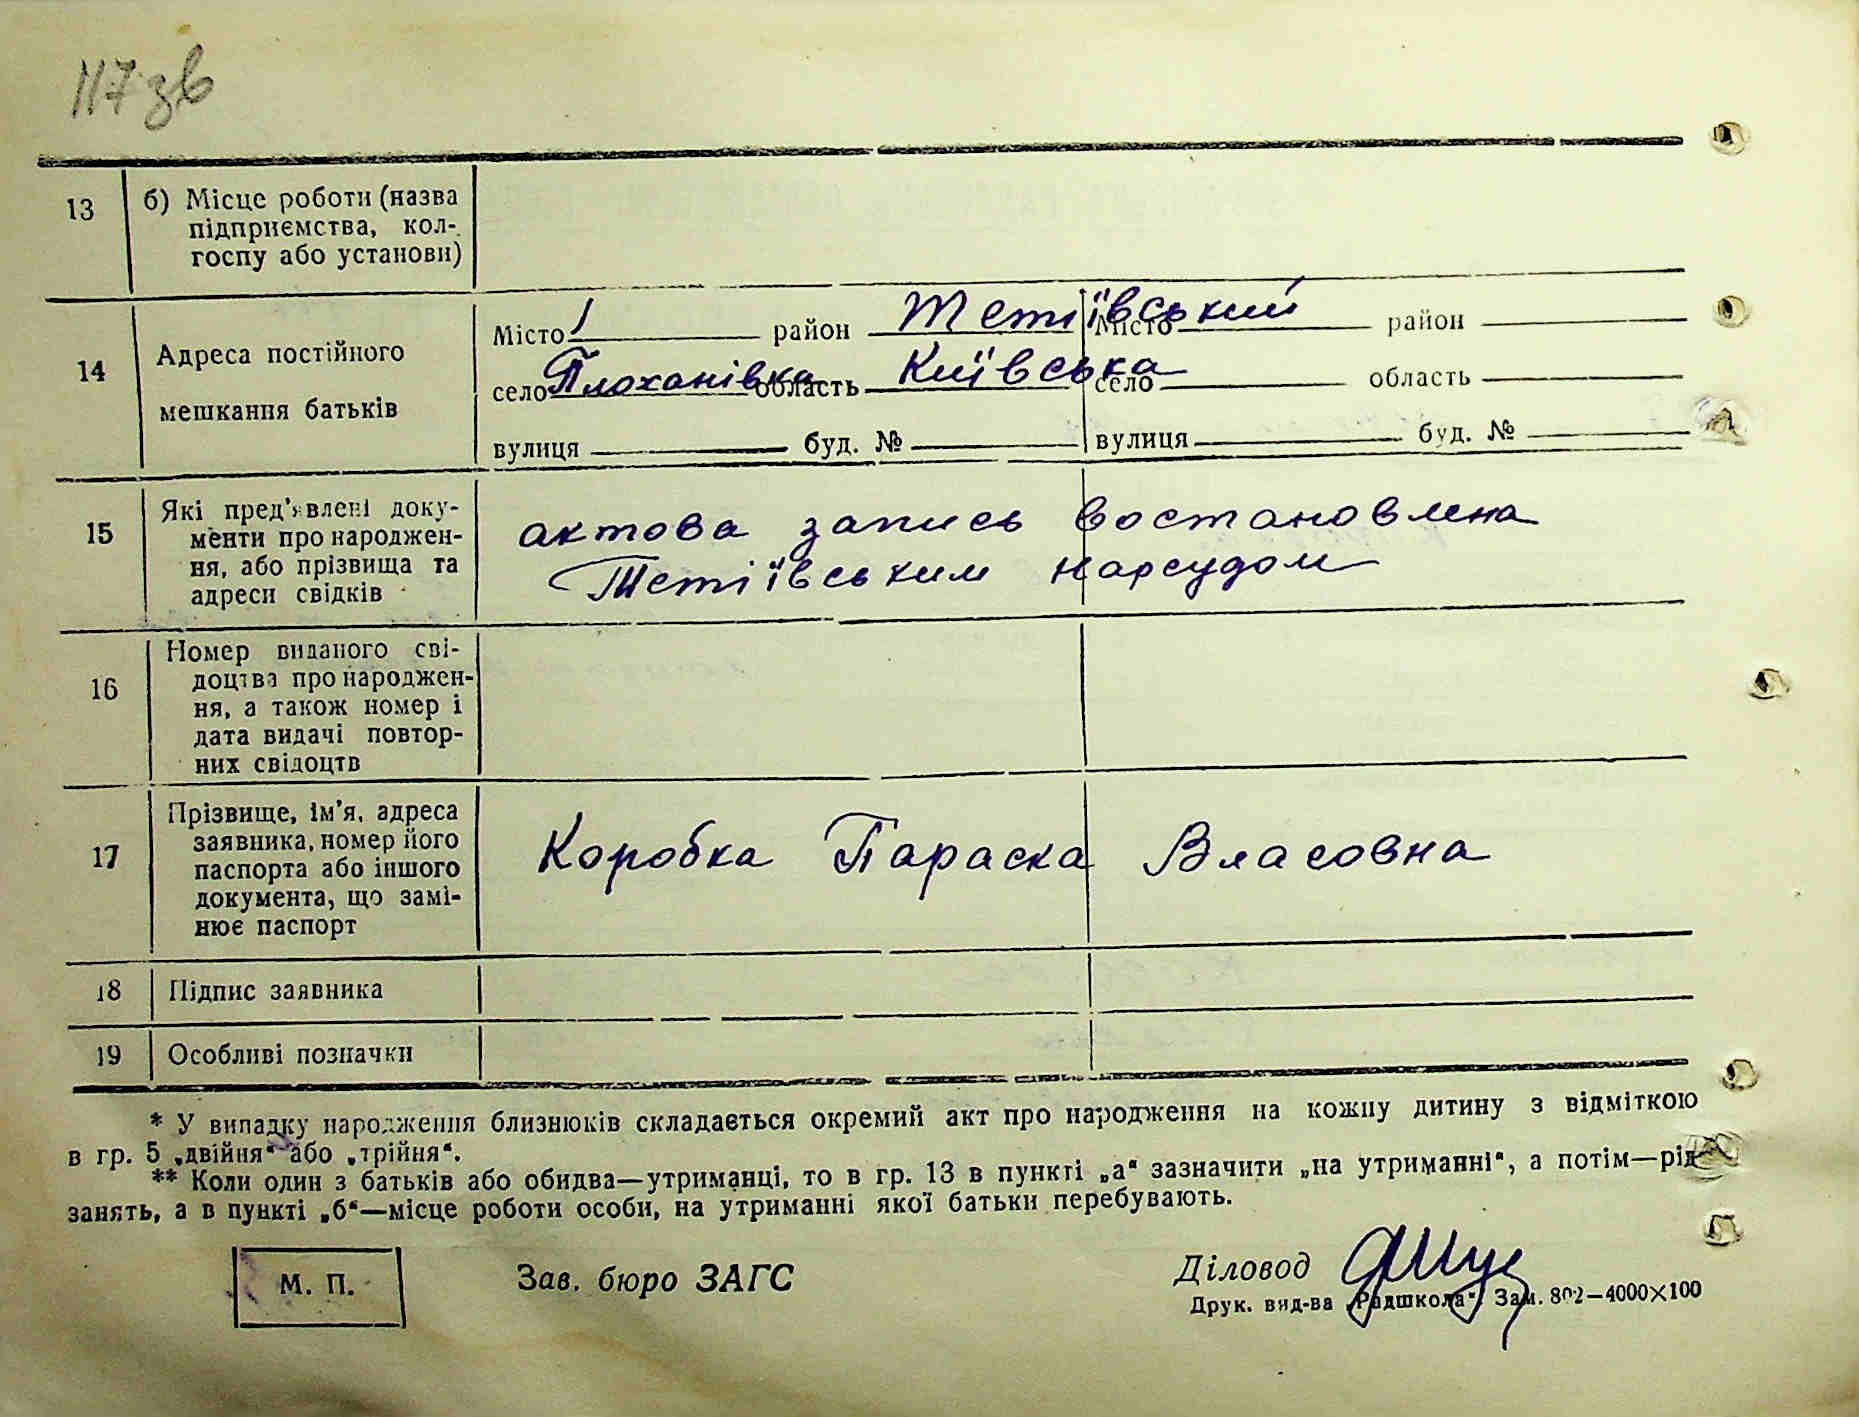 117 зв
13 б) Місце роботи (назва
підприємства, кол-
госпу або установи)
14 Адреса постійного
мешкання батьків
Місто район Тетіївський Місто район
село Плоханівка область Київська село область
вулиця буд. № вулиця буд. №
15 Які пред'явлені доку-
менти про народжен-
ня, або прізвища та
адреси свідків
актова запись востановлена
Тетіївським нарсудом
16 Номер виданого сві-
доцтва про народжен-
ня, а також номер і
дата видачі повтор-
них свідоцтв
17 Прізвище, ім'я, адреса
заявника, номер його
паспорта або іншого
документа, що замі-
нює паспорт
Коробка Параска Власовна
18 Підпис заявника
19 Особливі позначки
* У випадку народження близнюків складається окремий акт про народження на кожну дитину з відміткою
в гр. 5 „двійня“ або „трійня“.
** Коли один з батьків або обидва—утриманці, то в гр. 13 в пункті „а“ зазначити „на утриманні“, а потім—рід
занять, а в пункті „б“—місце роботи особи, на утриманні якої батьки перебувають.
М. П. Зав. бюро ЗАГС Діловод
Друк. вид-ва „Радшкола“. Зам. 802—4000×100